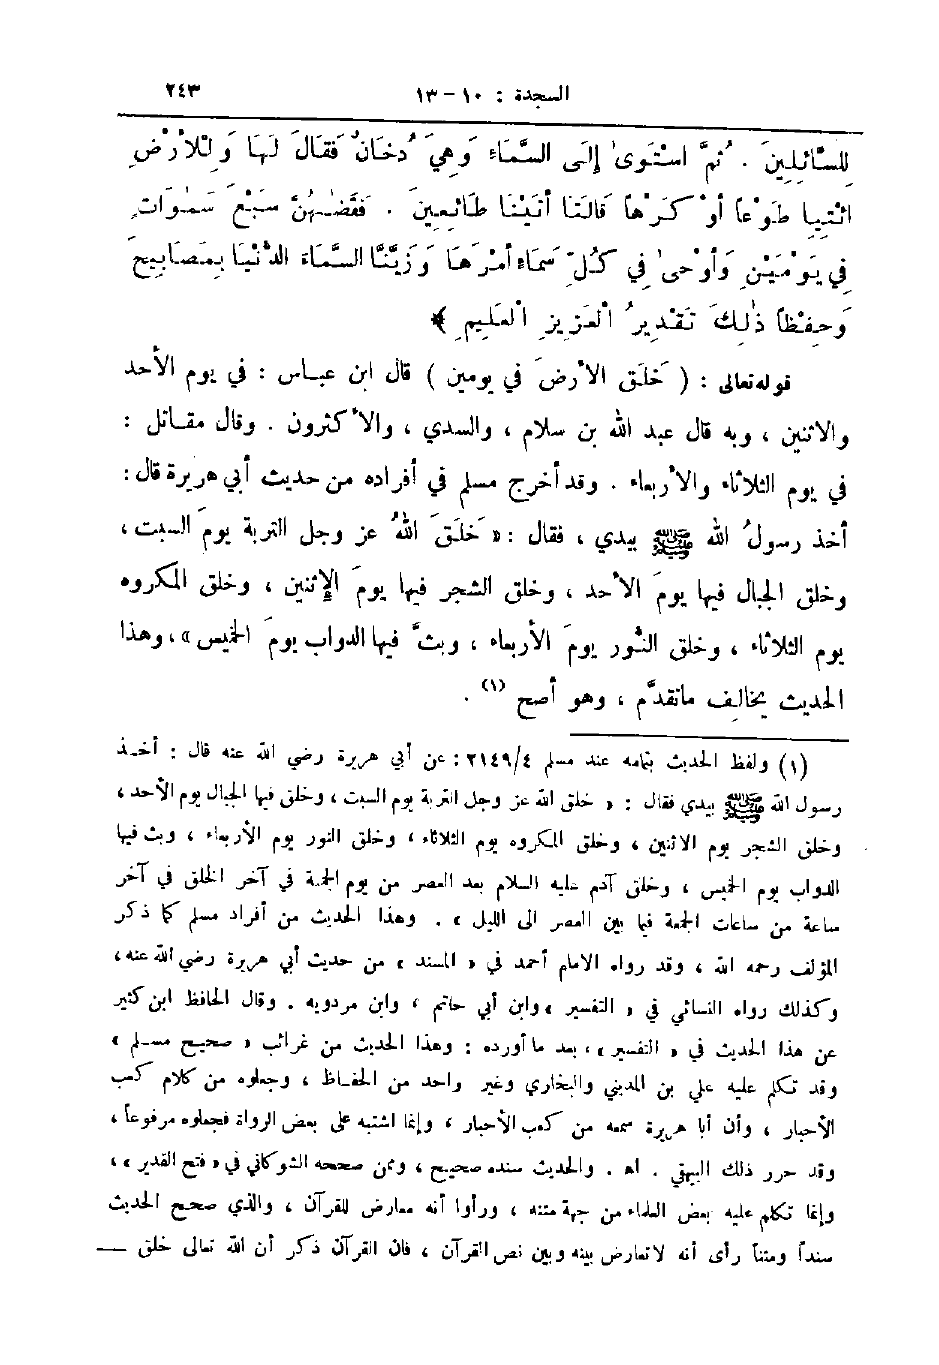 السجدة : ١٠ – ١٣ ٢٤٣
لِلسَّائِلِينَ . ثُمَّ اسْتَوَىٰ إِلَى السَّمَاءِ وَهِيَ دُخَانٌ فَقَالَ لَهَا وَلِلْأَرْضِ
ائْتِيَا طَوْعاً أَوْ كَرْهاً قَالَتَا أَتَيْنَا طَائِعِينَ . فَقَضٰهُنَّ سَبْعَ سَمٰوَاتٍ
فِي يَوْمَيْنِ وَأَوْحىٰ فِي كُلِّ سَمَاءٍ أَمْرَهَا وَزَيَّنَّا السَّمَاءَ الدُّنْيَا بِمَصَابِيحَ
وَحِفْظاً ذٰلِكَ تَقْدِيرُ الْعَزِيزِ الْعَلِيمِ ﴾
قوله تعالى : ( خَلَقَ الأرْضَ في يومين ) قال ابن عباس : في يوم الأحد
والاثنين ، وبه قال عبد الله بن سلام ، والسدي ، والأكثرون . وقال مقاتل :
في يوم الثلاثاء والأربعاء . وقد أخرج مسلم في أفراده من حديث أبي هريرة قال :
أخذ رسولُ الله ﷺ بيدي ، فقال : « خَلَقَ اللهُ عز وجل التربة يومَ السبت ،
وخلق الجبال فيها يومَ الأحد ، وخلق الشجر فيها يومَ الإثنين ، وخلق المكروه
يوم الثلاثاء ، وخلق النُّور يومَ الأربعاء ، وبثَّ فيها الدواب يومَ الخميس » ، وهذا
الحديث يخالف ماتقدَّم ، وهو أصح (١) .
(١) ولفظ الحديث بتمامه عند مسلم ٢١٤٩/٤ : عن أبي هريرة رضي الله عنه قال : أخذ
رسول الله ﷺ بيدي فقال : « خلق الله عز وجل التربة يوم السبت ، وخلق فيها الجبال يوم الأحد ،
وخلق الشجر يوم الاثنين ، وخلق المكروه يوم الثلاثاء ، وخلق النور يوم الأربعاء ، وبث فيها
الدواب يوم الخميس ، وخلق آدم عليه السلام بعد العصر من يوم الجمعة في آخر الخلق في آخر
ساعة من ساعات الجمعة فيما بين العصر الى الليل » . وهذا الحديث من أفراد مسلم كما ذكر
المؤلف رحمه الله ، وقد رواه الامام أحمد في « المسند » من حديث أبي هريرة رضي الله عنه ،
وكذلك رواه النسائي في « التفسير » وابن أبي حاتم ، وابن مردويه . وقال الحافظ ابن كثير
عن هذا الحديث في « التفسير » ، بعد ما أورده : وهذا الحديث من غرائب « صحيح مسلم »
وقد تكلم عليه علي بن المديني والبخاري وغير واحد من الحفاظ ، وجعلوه من كلام كعب
الأحبار ، وأن أبا هريرة سمعه من كعب الأحبار ، وإنما اشتبه على بعض الرواة فجعلوه مرفوعاً ،
وقد حرر ذلك البيهقي . اهـ . والحديث سنده صحيح ، وممن صححه الشوكاني في « فتح القدير » ،
وإنما تكلم عليه بعض العلماء من جهة متنه ، ورأوا أنه معارض للقرآن ، والذي صحح الحديث
سنداً ومتناً رأى أنه لا تعارض بينه وبين نص القرآن ، فان القرآن ذكر أن الله تعالى خلق —